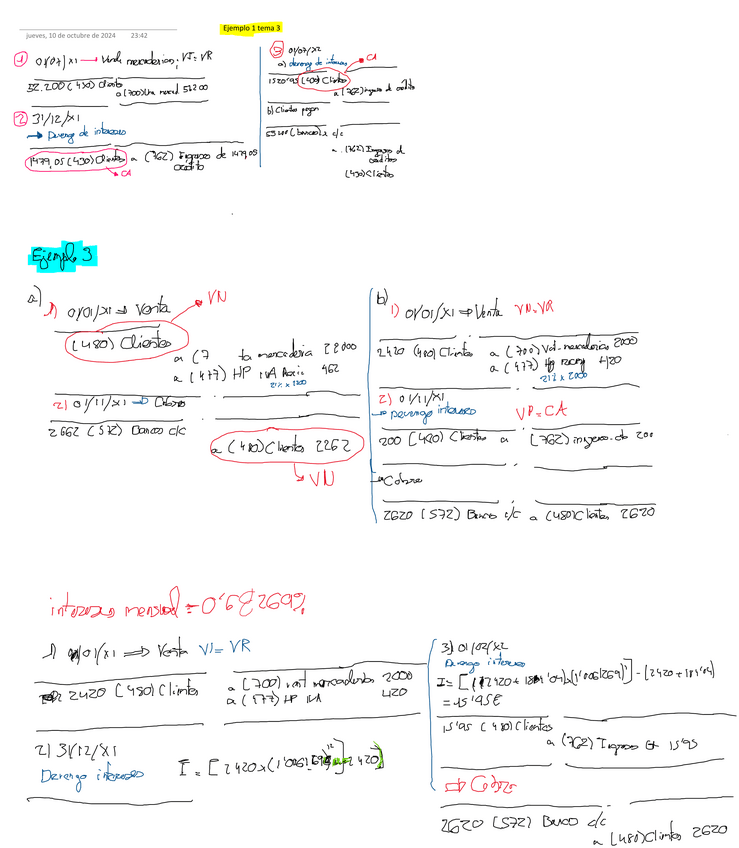 Ejemplo 1 tema 3
jueves, 10 de octubre de 2024 23:42
1) 01/07/X1 → Venta mercaderías; VI = VR
52.200 (430) Clientes
a (700) Vta mercad. 52200
2) 31/12/X1
→ Devengo de intereses
1479,05 (430) Clientes a (762) Ingresos de 1479,05
crédito
CA
3) 01/07/X2
a) devengo de intereses
CA
1520'95 (430) Clientes
a (762) ingreso de crédito
b) Clientes pagan
(banco) c/c
a (762) Ingresos d
créditos
(430) Clientes
Ejemplo 3
a)
1) 01/01/X1 ⇒ Venta
VN
(480) Clientes
a (7 ta mercadería 22000
a (477) HP IVA 462
21% x
2) 01/11/X1 → Cobro
2662 (572) Banco c/c
a (480) Clientes 2262
VN
b)
1) 01/01/X1 ⇒ Venta VN=VR
2420 (480) Clientes a (700) Vet. mercaderías 2000
a (477) Hp 420
21% x 2000
2) 01/11/X1
→ Devengo intereses VR=CA
200 (480) Clientes a (762) ingreso. do 200
→ Cobro
2620 (572) Banco c/c a (480) Clientes 2620
mensual =
1) 01/01/X1 ⇒ Venta VI=VR
2420 (480) Clientes
a (700) vent mercaderías 2000
a (477) HP IVA 420
2) 31/12/X1
Devengo intereses
I = [2420x(1'006
12
2420]
3) 01/02/X2
Devengo intereses
I = [(2420+181'04)x(1'0061269)¹] - (2420+181'04)
= 15'95€
15'95 (480) Clientes
a (762) Ingresos 15'95
⇒ Cobro
2620 (572) Banco c/c
a (480) Clientes 2620